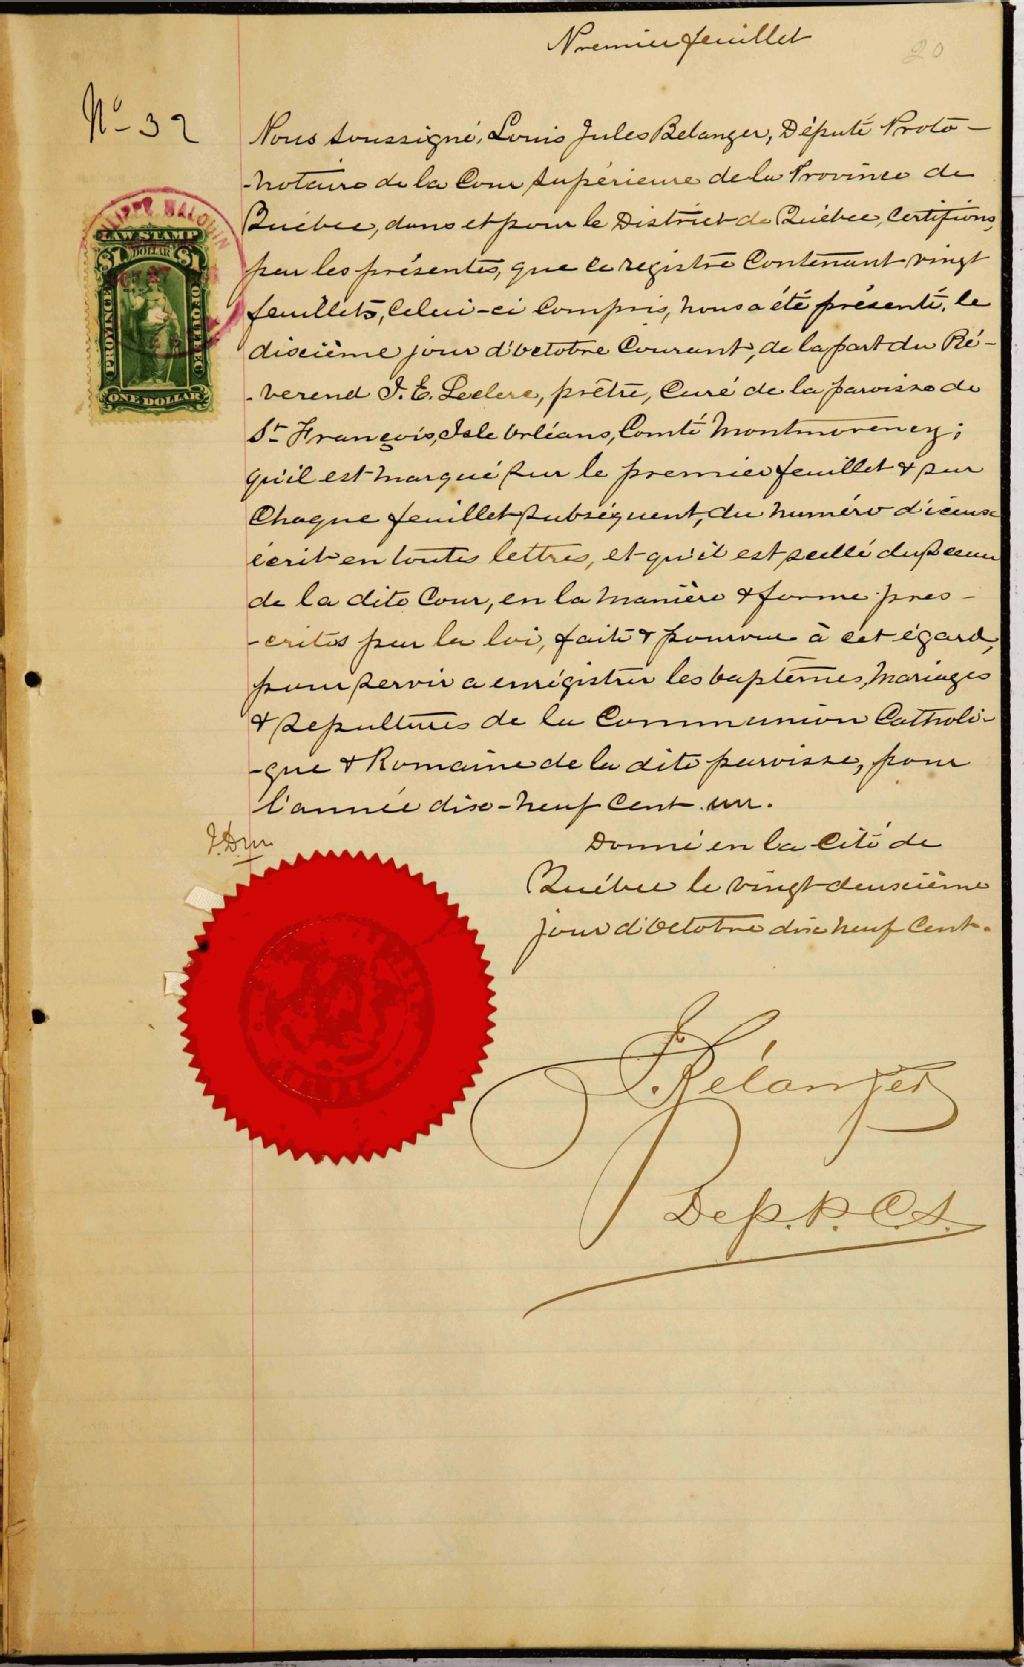 Premier feuillet
20
No 32
Nous soussigné, Louis Jules Bélanger, Député Proto-
-notaire de la Cour Supérieure de la Province de
Québec, dans et pour le District de Québec, Certifions,
par les présentes, que ce registre Contenant vingt
feuillets, Celui-ci Compris, nous a été présenté, le
dixième jour d'octobre Courant, de la part du Ré-
-verend J. E. Leclerc, prêtre, Curé de la paroisse de
St François, Isle Orléans, Comté Montmorency;
qu'il est marqué sur le premier feuillet & sur
Chaque feuillet subséquent, du numéro d'iceux
écrit en toutes lettres, et qu'il est scellé du sceau
de la dite Cour, en la manière & forme pres-
-crites par la loi, faite & pourvue à cet égard,
pour servir a enrégistrer les baptêmes, Mariages
& sepultures de la Communion Catholi-
-que & Romaine de la dite paroisse, pour
l'année dix-neuf Cent un.
Donné en la Cité de
Québec le vingt-deuxième
jour d'Octobre dix neuf Cent.
J. Bélanger
Dep. P. C. S.
LAW STAMP
$1 DOLLAR $1
PROVINCE OF QUEBEC
ONE DOLLAR
MALOUIN